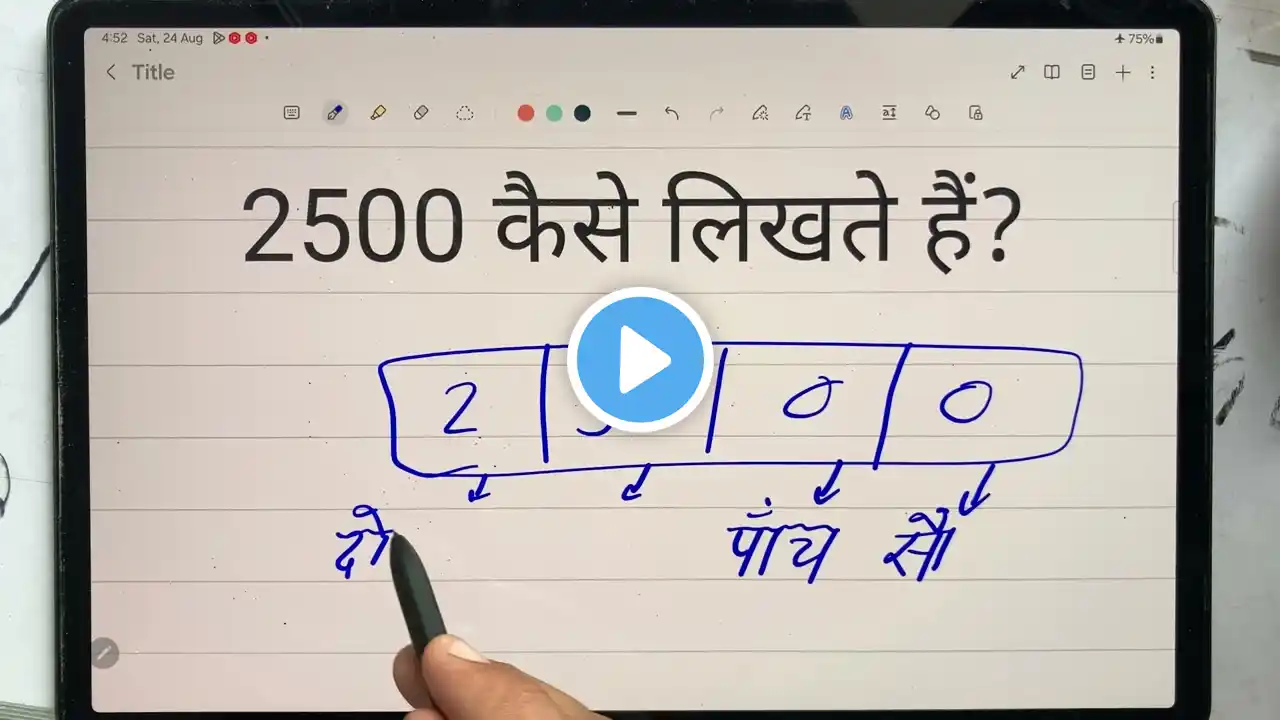 4:52 Sat, 24 Aug 75%
Title
2500 कैसे लिखते हैं?
2 0 0
दो पाँच सौ